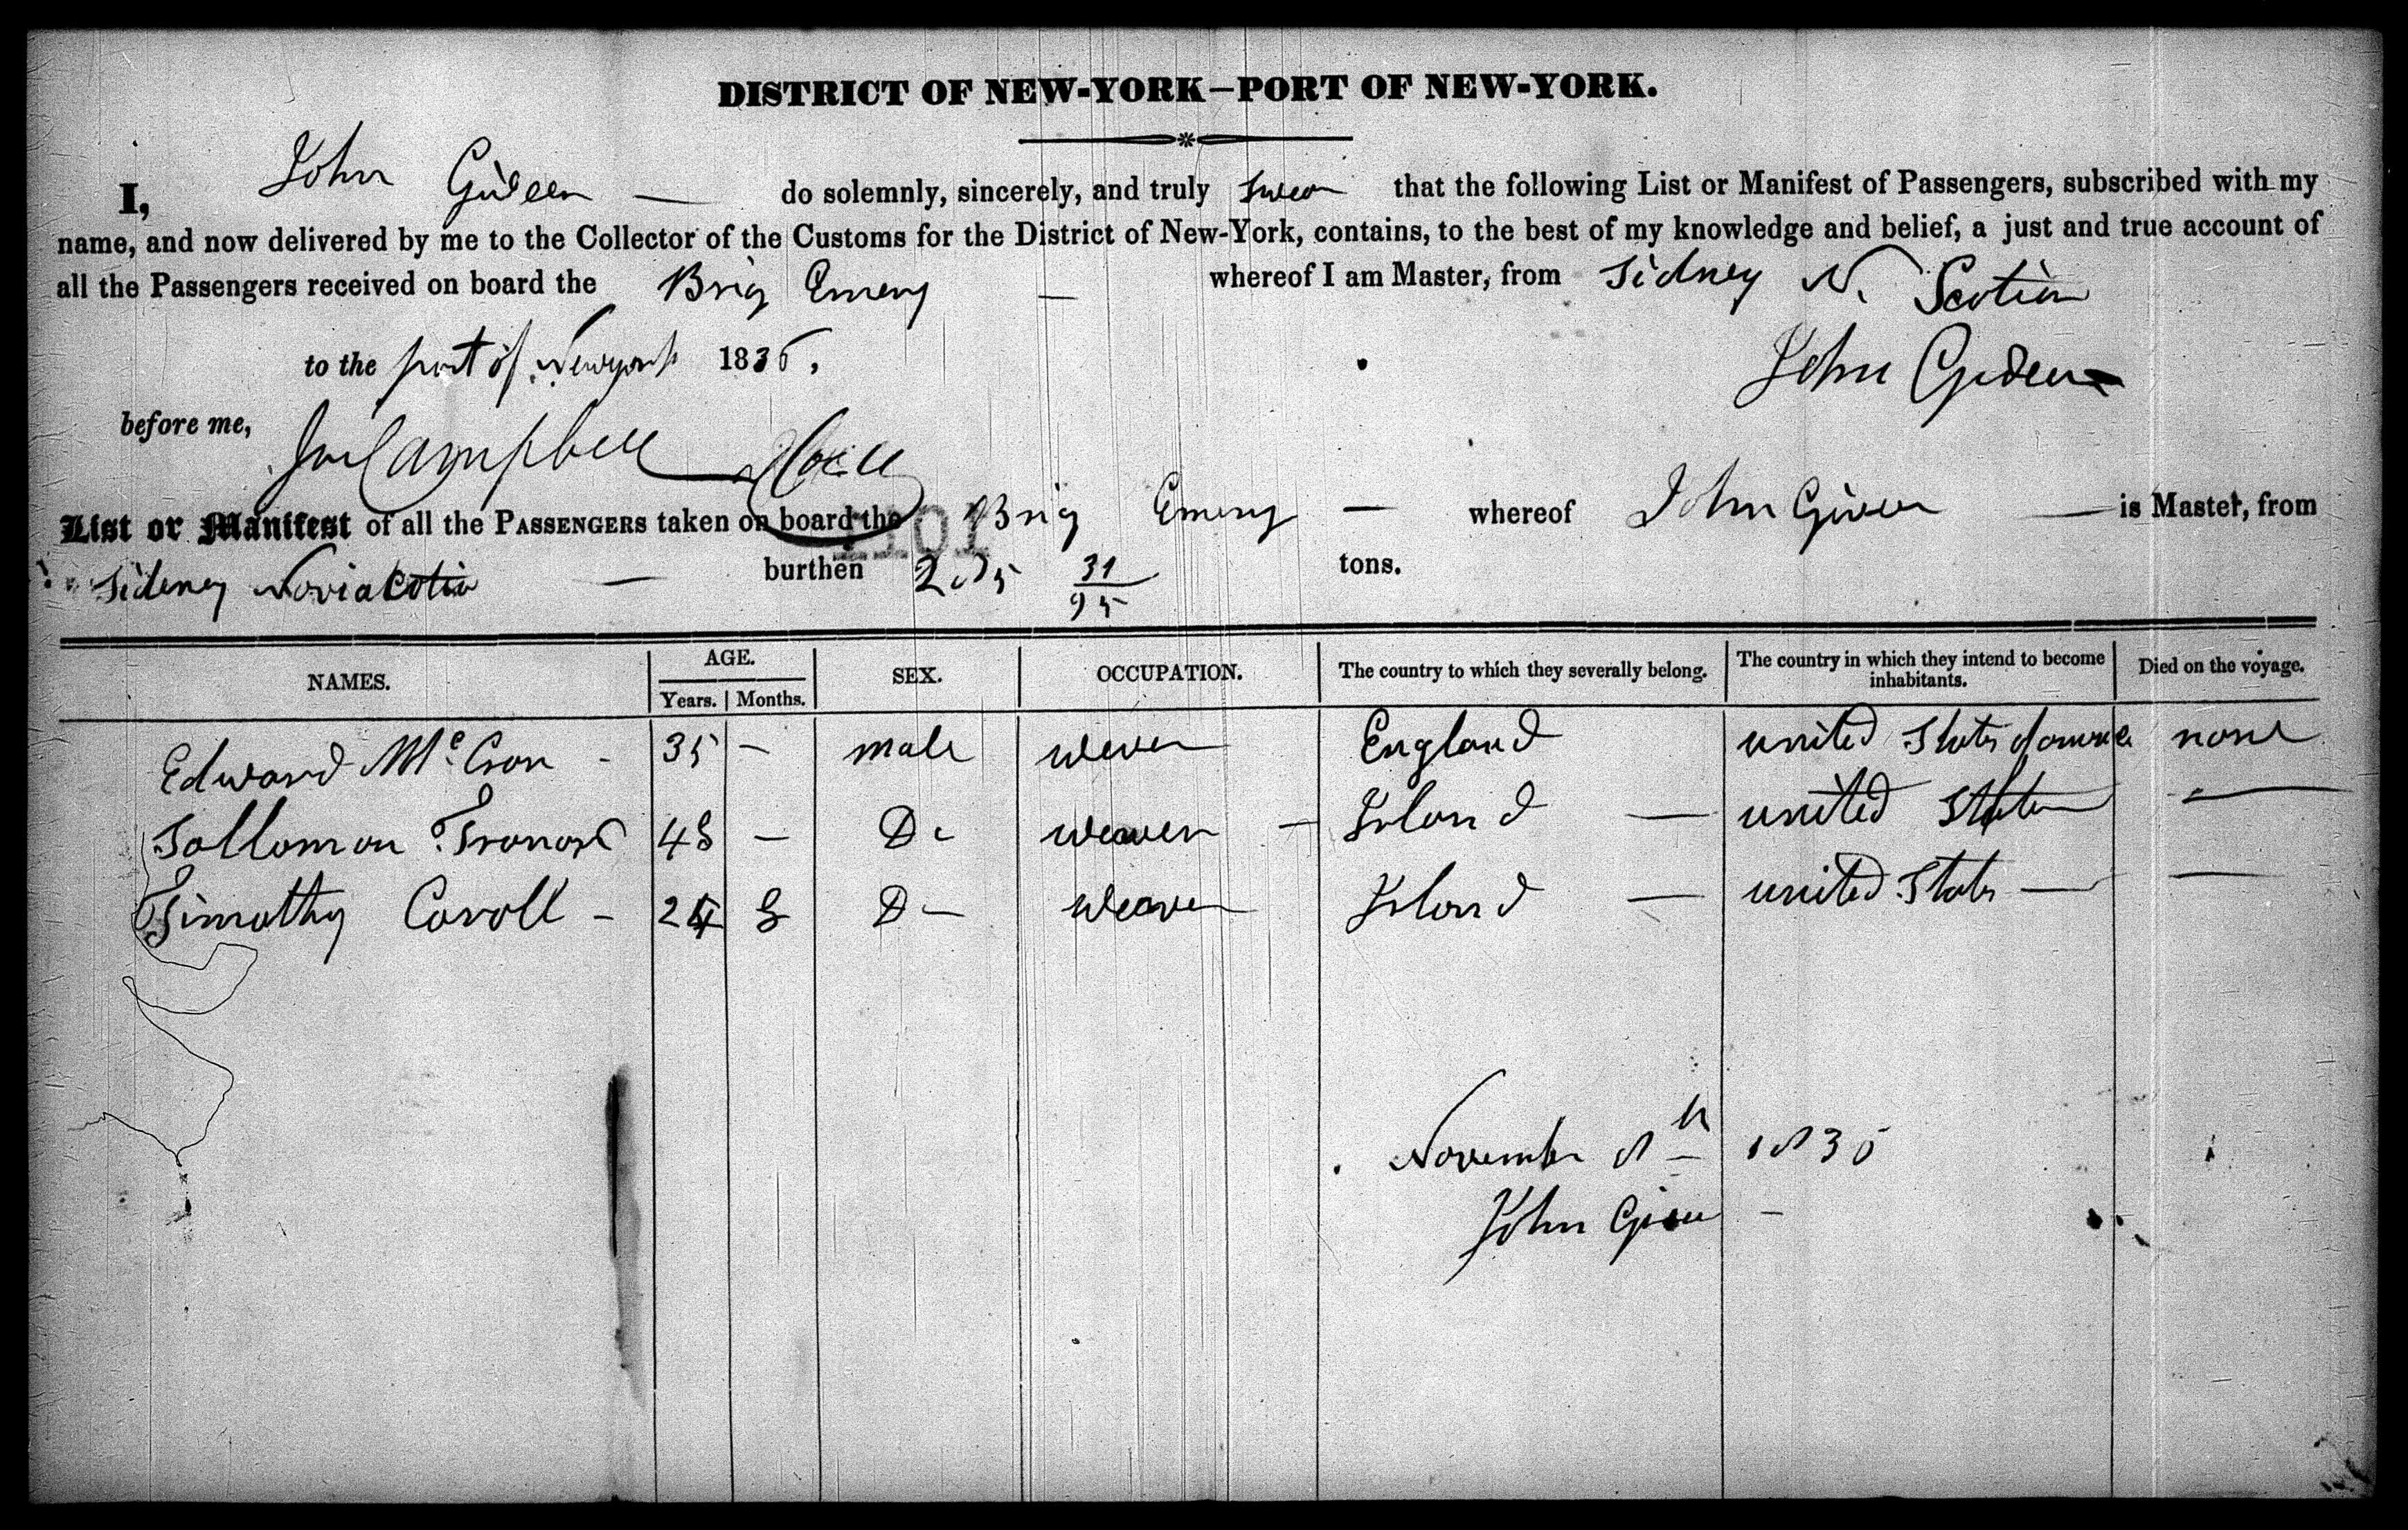 DISTRICT OF NEW-YORK—PORT OF NEW-YORK.
I, John Gideen — do solemnly, sincerely, and truly swear that the following List or Manifest of Passengers, subscribed with my
name, and now delivered by me to the Collector of the Customs for the District of New-York, contains, to the best of my knowledge and belief, a just and true account of
all the Passengers received on board the Brig Emery — whereof I am Master, from Sidney N. Scotia
to the port of Newyork 1836.
John
before me,
Campbell
List or Manifest of all the PASSENGERS taken on board the Brig Emery — whereof John — is Master, from
Sideney Noviacotia — burthen 31/95 tons.
NAMES. AGE. SEX. OCCUPATION. The country to which they severally belong. The country in which they intend to become inhabitants. Died on the voyage.
Years. Months.
Edward Mc Cron - 35 - male wever England united States none
Sollomon 48 - Do weaver - Irland — united States —
Timothy Coroll - 24 8 Do — weaver Irland — united States — —
November 8th 1836
John